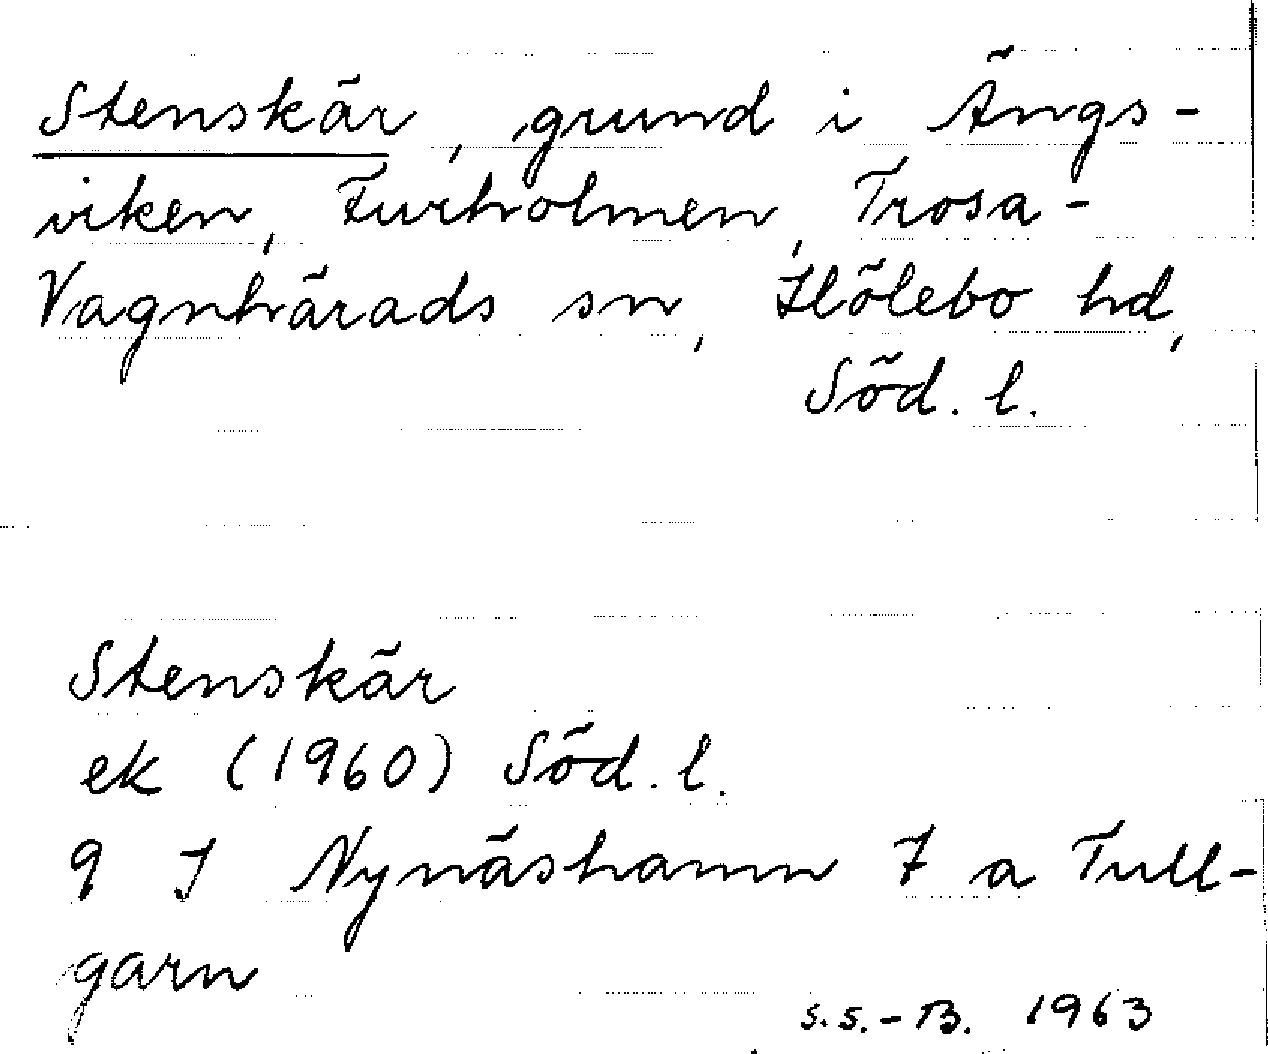 Stenskär, grund i Ängs-
viken, Furholmen, Trosa-
Vagnhärads sn, Hölebo hd,
Söd. l.
Stenskär
ek (1960) Söd. l.
9 I Nynäshamn 7 a Tull-
garn
S.S.-B. 1963